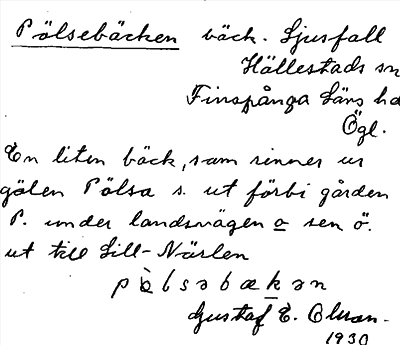 Pölsebäcken bäck. Ljusfall
Hällestads sn
Finspånga Läns hd
Ögl.
En liten bäck, som rinner ur
gölen Pölsa s. ut förbi gården
P. under landsvägen o sen ö.
ut till Lill-Närlen
Gustaf E. Olsson.
1930